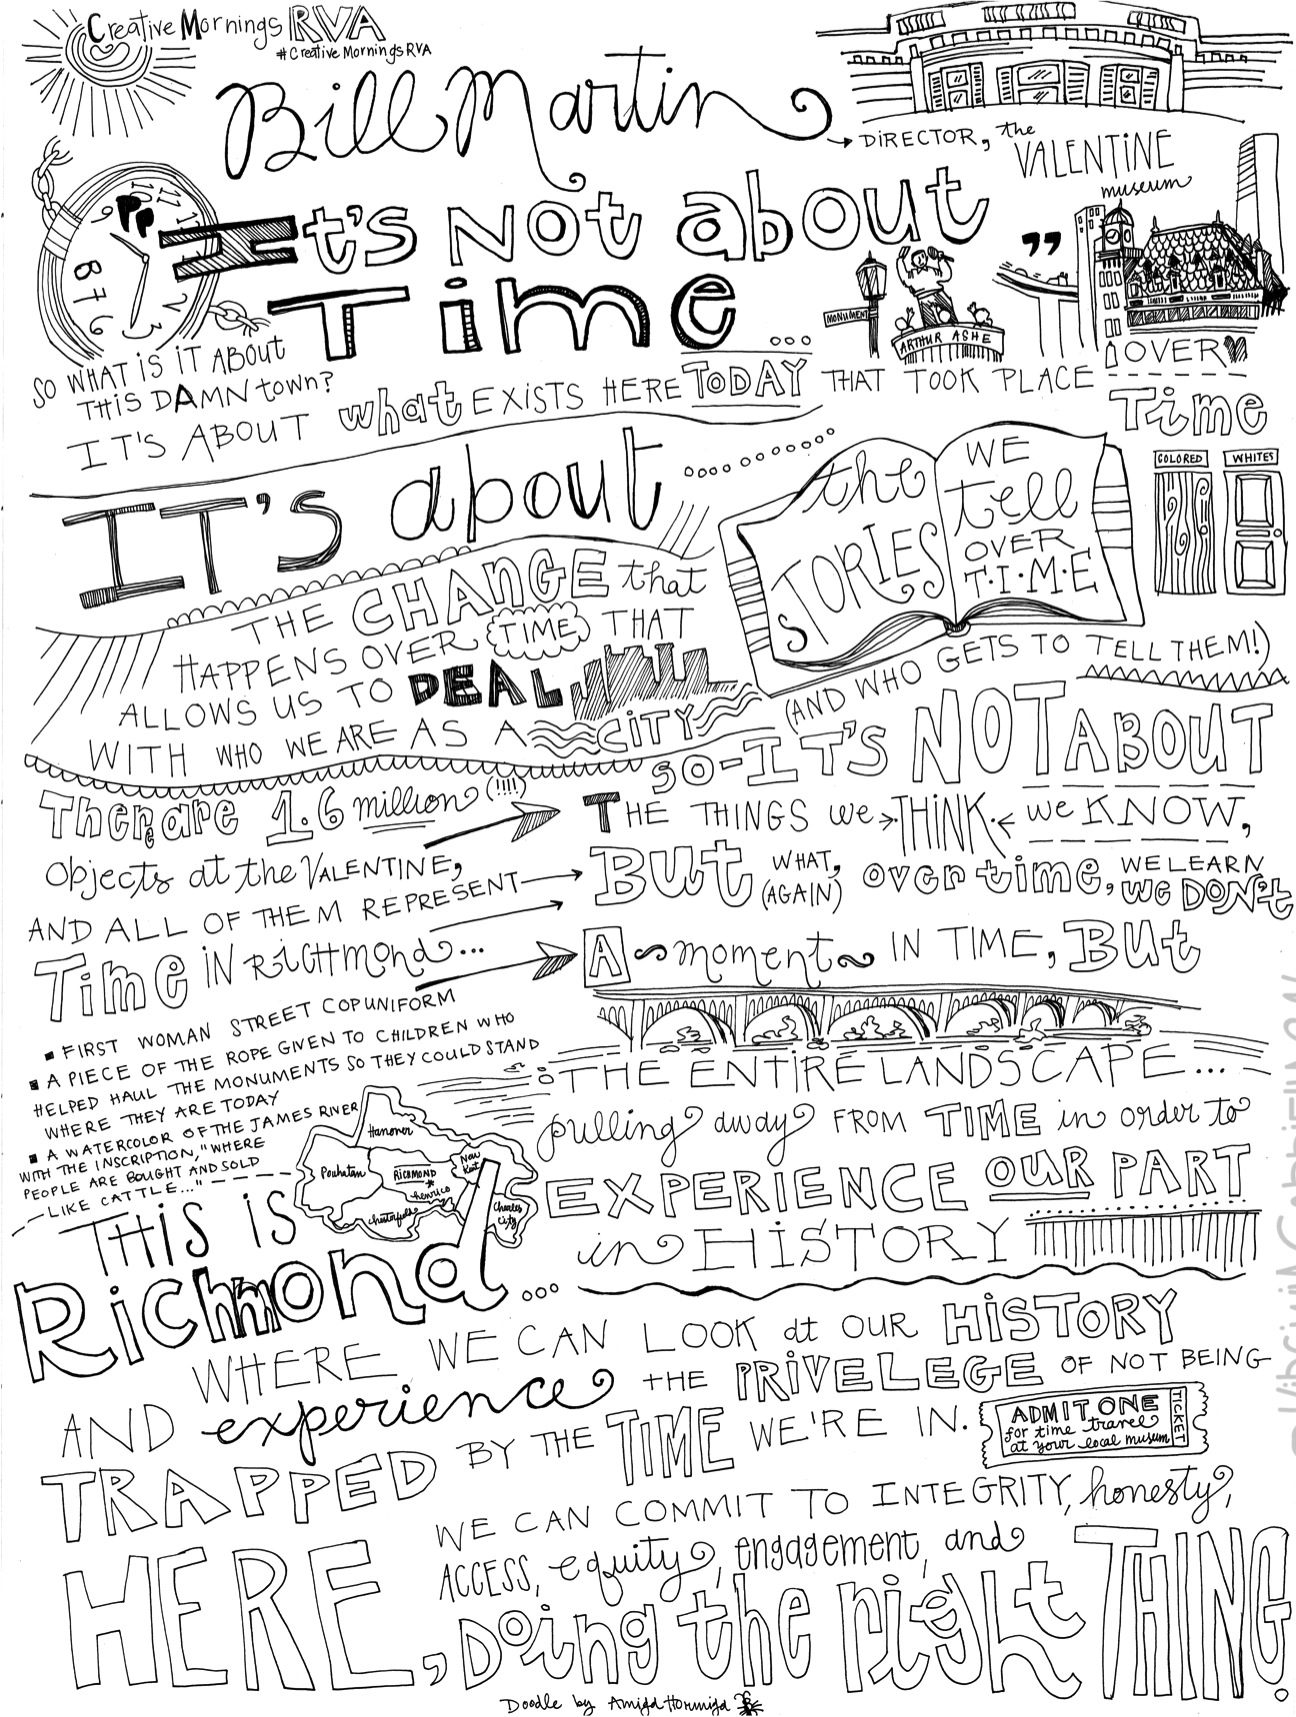 Creative Mornings RVA
#CreativeMorningsRVA
Bill Martin
DIRECTOR, the
VALENTINE
museum
"It's Not about
Time ... "
12
11
10
9
8
7
6
3
2
MONUMENT
ARTHUR ASHE
SO WHAT IS IT ABOUT
THIS DAMN town?
IT'S ABOUT what EXISTS HERE TODAY THAT TOOK PLACE OVER
Time
COLORED
WHITES
IT'S about
the STORIES
WE tell
OVER
T·I·M·E
THE CHANGE that
HAPPENS OVER TIME THAT
ALLOWS US TO DEAL
WITH WHO WE ARE AS A CITY
(AND WHO GETS TO TELL THEM!)
SO-IT'S NOT ABOUT
THE THINGS we THINK we KNOW,
BUT WHAT, (AGAIN) over time, WE LEARN
we DON't
There are 1.6 million (!!!!)
Objects at the VALENTINE,
AND ALL OF THEM REPRESENT
Time IN RICHmond...
A moment IN TIME, BUt
THE ENTIRE LANDSCAPE...
pulling away FROM TIME in order to
EXPERIENCE OUR PART
in HISTORY
▪ FIRST WOMAN STREET COP UNIFORM
▪ A PIECE OF THE ROPE GIVEN TO CHILDREN WHO
HELPED HAUL THE MONUMENTS SO THEY COULD STAND
WHERE THEY ARE TODAY
▪ A WATERCOLOR OF THE JAMES RIVER
WITH THE INSCRIPTION, "WHERE
PEOPLE ARE BOUGHT AND SOLD
LIKE CATTLE..."
Hanover
Powhatan
RICHMOND
New Kent
henrico
Chesterfield
Charles City
THIS IS
Richmond...
WHERE WE CAN LOOK at OUR HISTORY
AND experience THE PRIVELEGE OF NOT BEING
TRAPPED BY THE TIME WE'RE IN.
ADMIT ONE
for time travel
at your local museum
TICKET
HERE, WE CAN COMMIT TO INTEGRITY, honesty,
ACCESS, equity, engagement, and
Doing the right THING.
Doodle by Amiga Hormiga